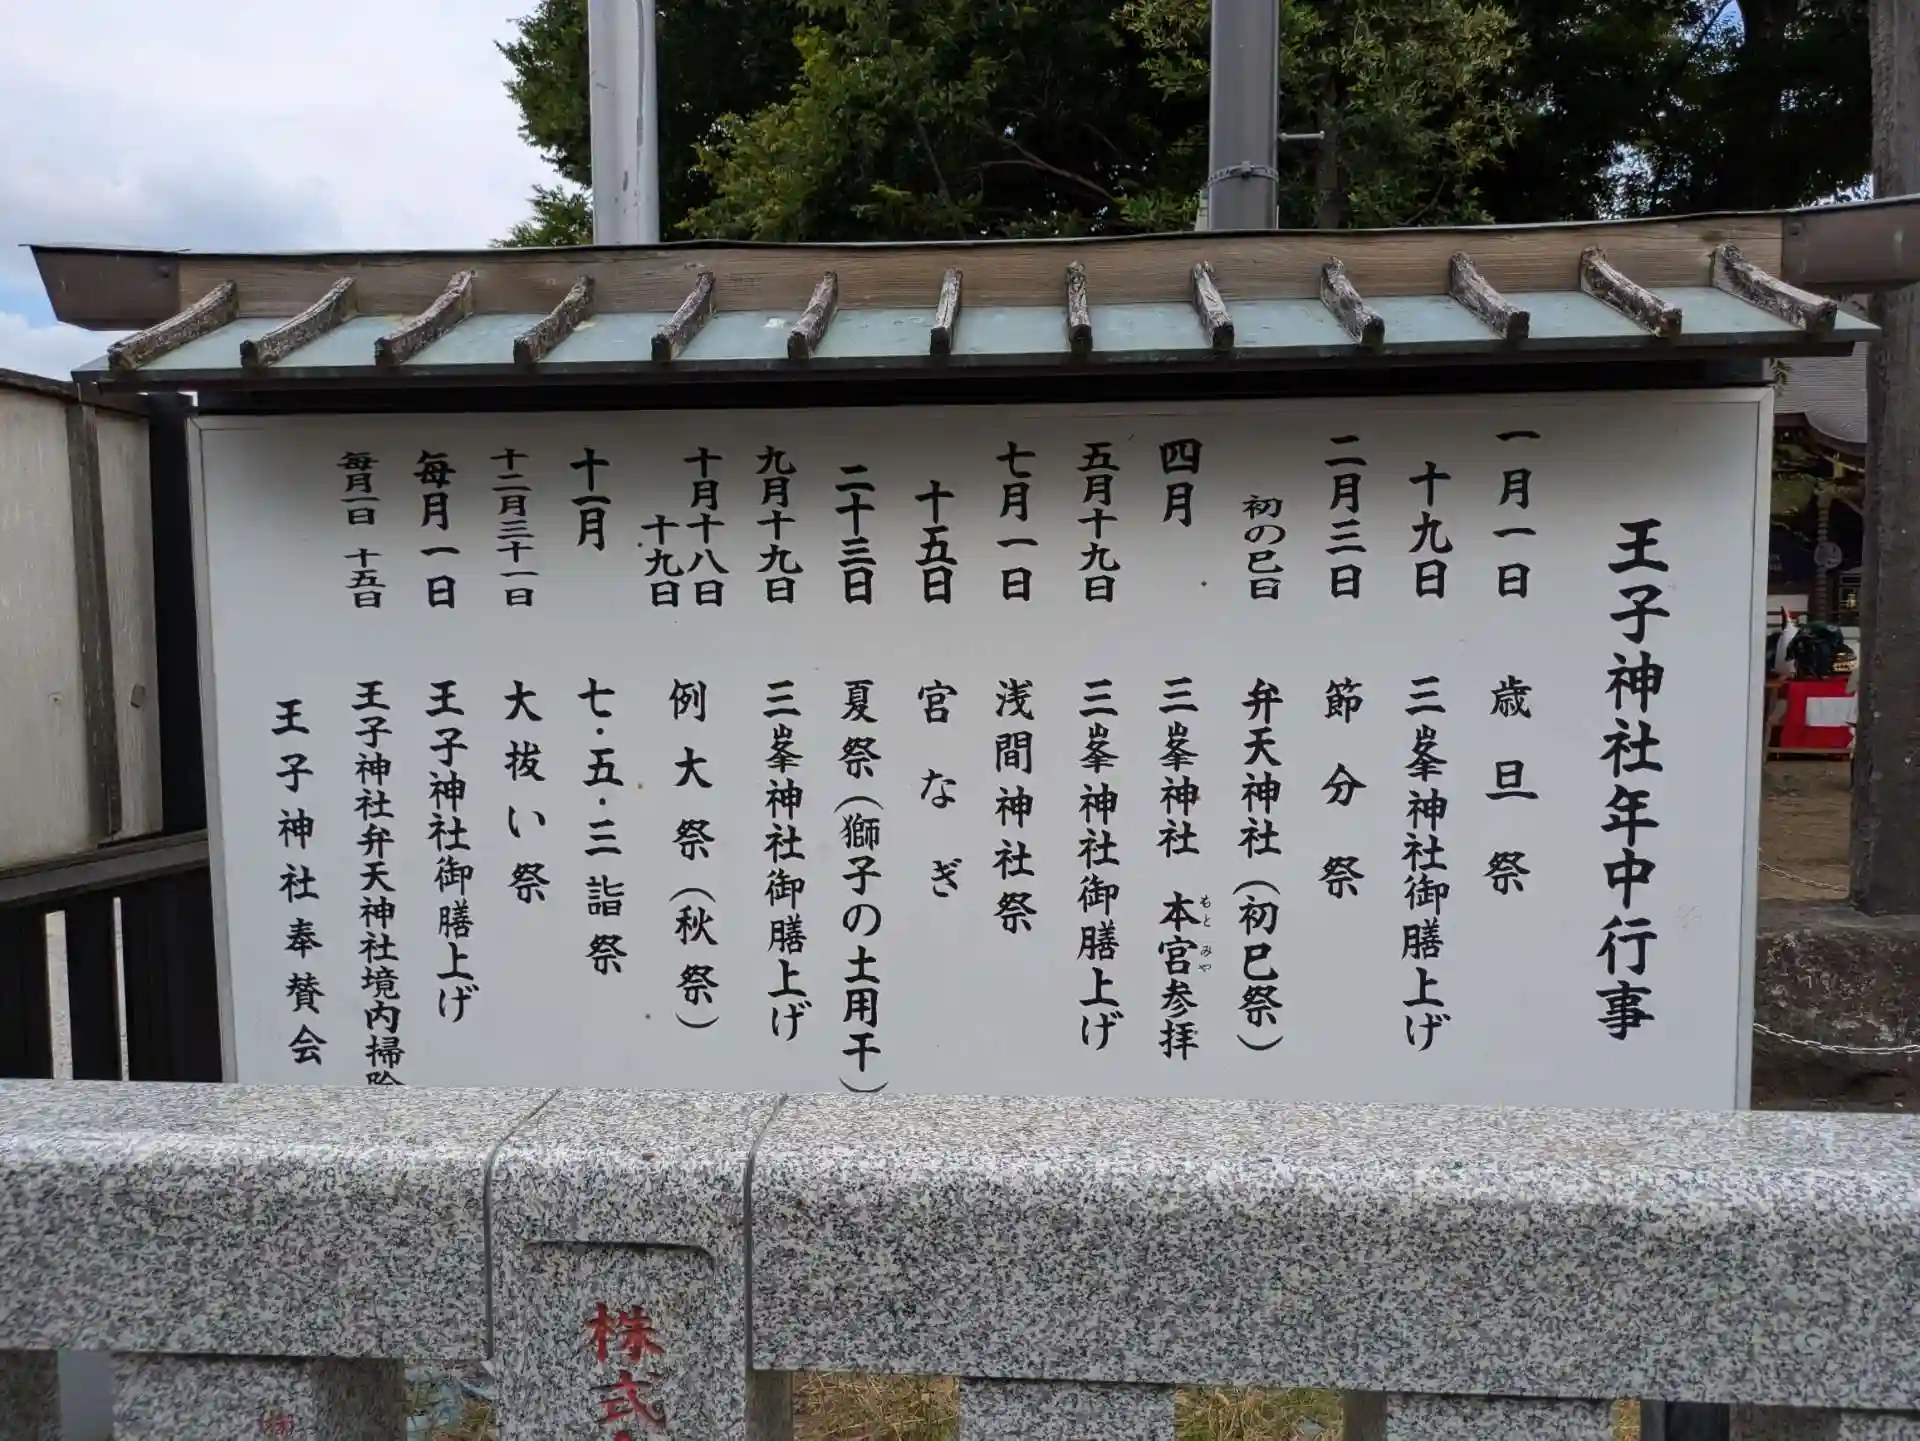 王子神社年中行事
一月一日 歳旦祭
十九日 三峯神社御膳上げ
二月三日 節分祭
初の巳日 弁天神社(初巳祭)
四月 三峯神社 本宮参拝
もと みや
五月十九日 三峯神社御膳上げ
七月一日 浅間神社祭
十五日 宮なぎ
二十三日 夏祭(獅子の土用干)
九月十九日 三峯神社御膳上げ
十月十八日
十九日 例大祭(秋祭)
十一月 七・五・三詣祭
十二月三十一日 大抜い祭
毎月一日 王子神社御膳上げ
毎月一日 十五日 王子神社弁天神社境内掃除
王子神社奉賛会
株式
㈱